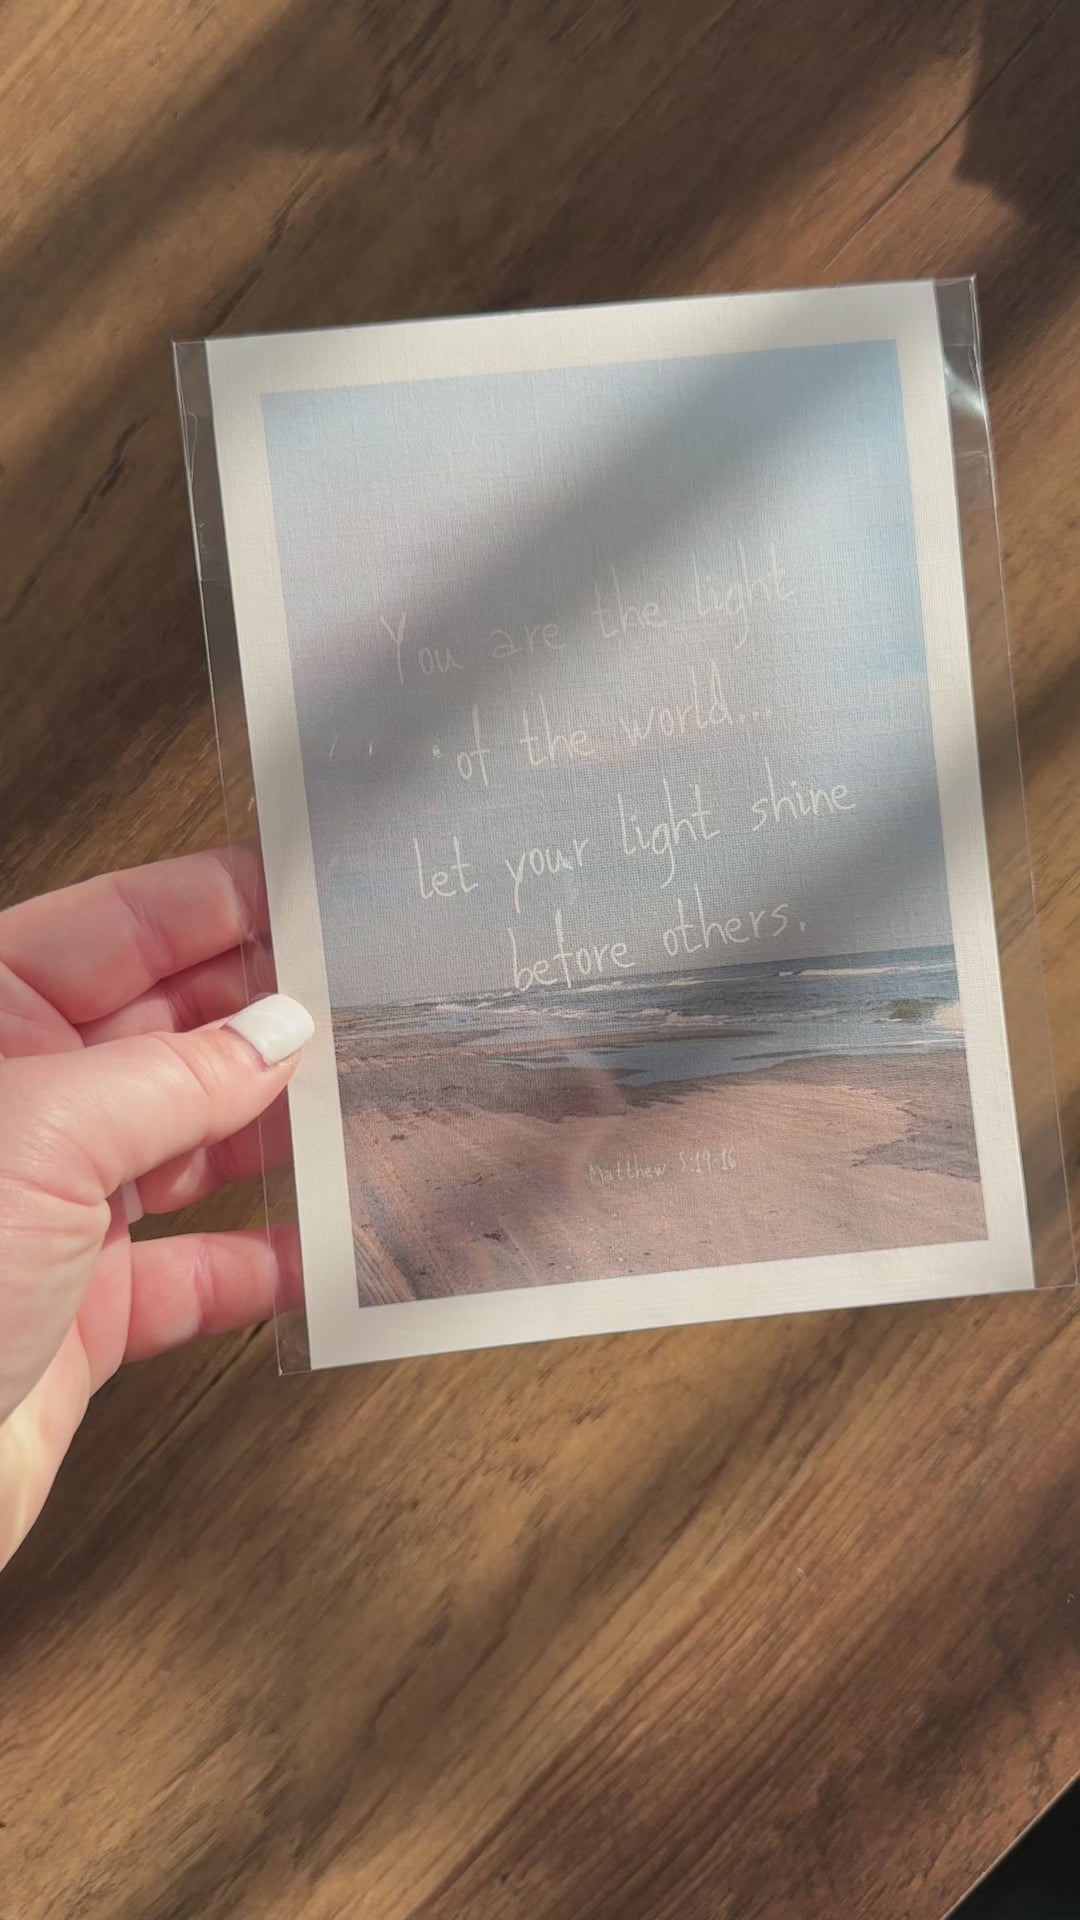 You are the light
of the world...
let your light shine
before others.
Matthew 5:14-16